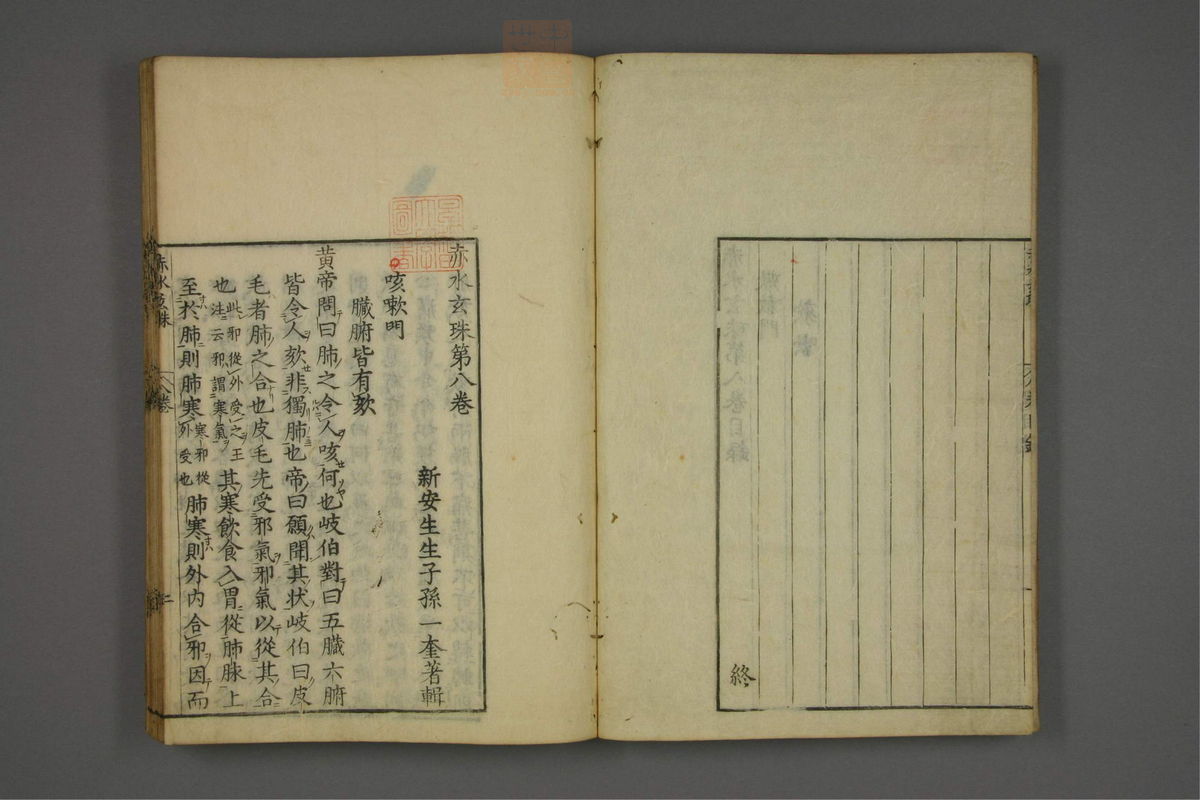 終
赤水玄珠第八卷
新安生生子孫一奎著輯
咳嗽門
臟腑皆有欬
黃帝問曰肺之令人咳何也岐伯對曰五臟六腑
皆令人欬非獨肺也帝曰願聞其狀岐伯曰皮
毛者肺之合也皮毛先受邪氣邪氣以從其合
也此邪從外受之王注云邪謂寒氣其寒飲食入胃從肺脉上
至於肺則肺寒寒邪從外受也肺寒則外內合邪因而
赤水玄珠
八卷